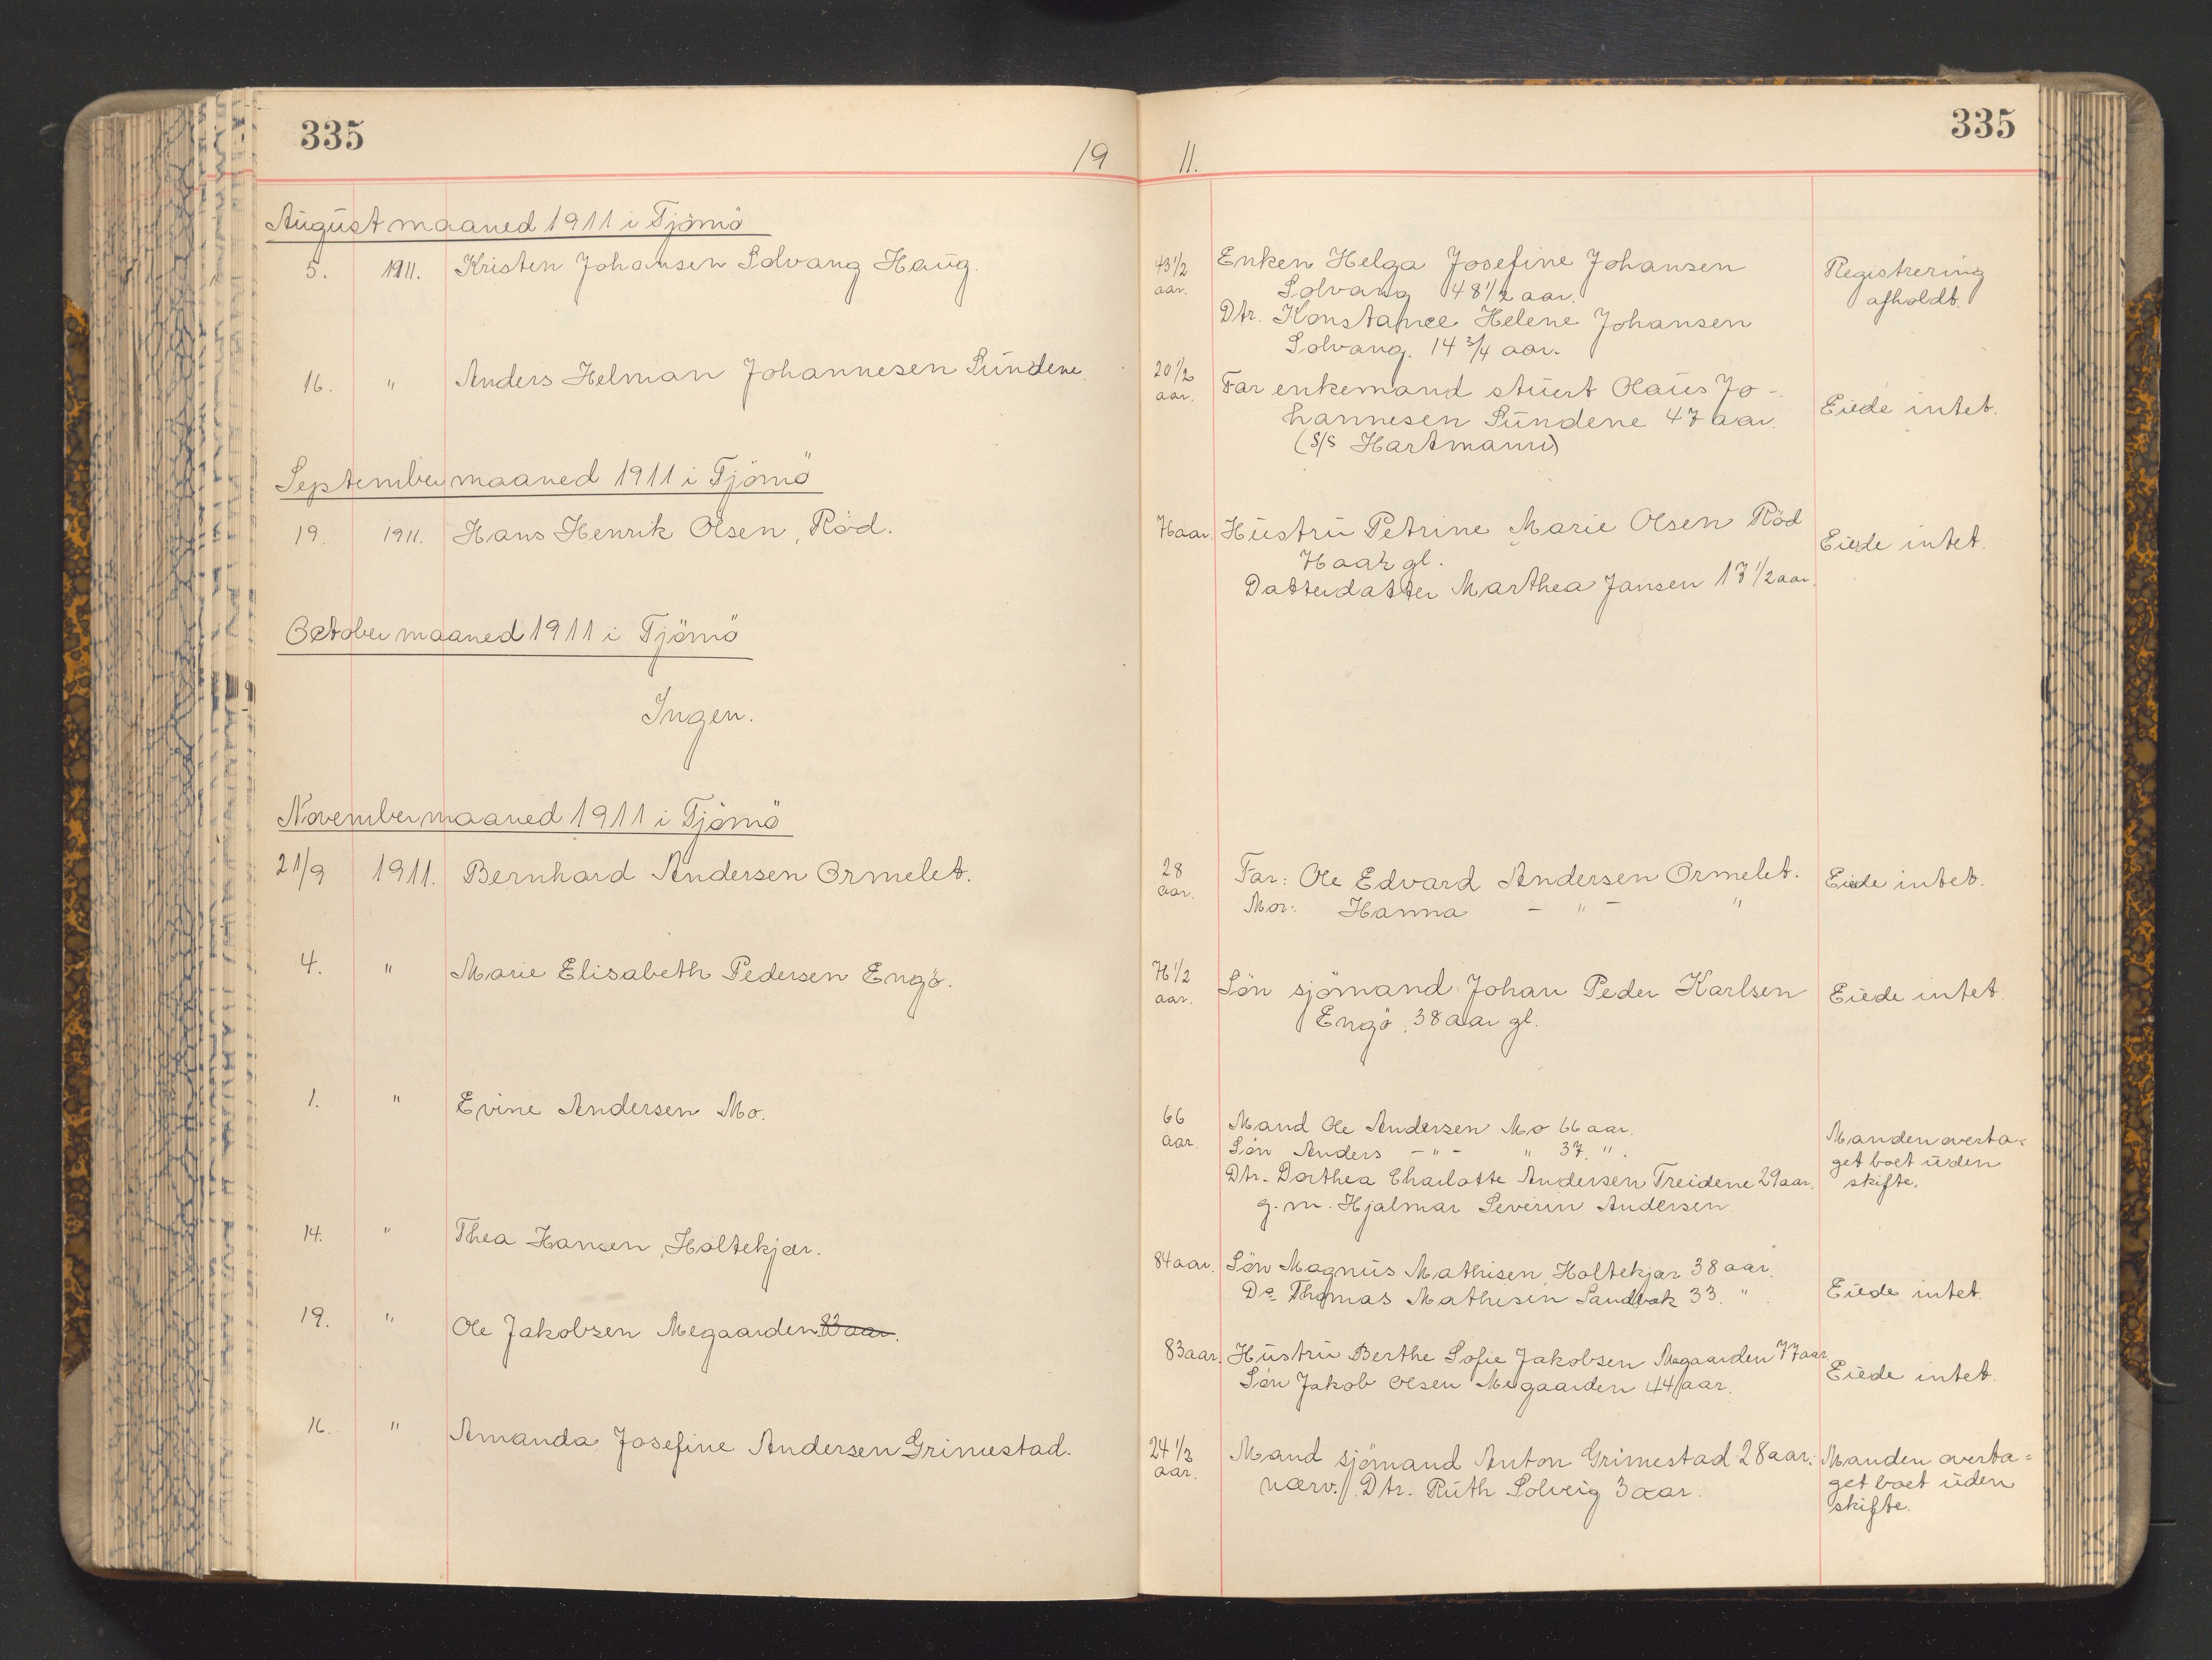 335
335
19 11.
August maaned 1911 i Tjömö
5. 1911. Kristen Johansen Solvang Haug.
43 1/2 aar.
Enken Helga Josefine Johansen
Solvang 48 1/2 aar.
Dtr. Konstance Helene Johansen
Solvang. 14 3/4 aar.
Registrering
afholdt.
16. " Anders Helman Johannesen Sundene.
20 1/2 aar.
Far enkemand stuert Olaus Jo-
hannesen Sundene 47 aar.
(S/S Hartmann)
Eiede intet.
September maaned 1911 i Tjömö
19. 1911. Hans Henrik Olsen, Röd.
76 aar.
Hustru Petrine Marie Olsen Röd
76 aar gl.
Datterdatter Marthea Jansen 17 1/2 aar.
Eiede intet.
October maaned 1911 i Tjömö
Ingen.
November maaned 1911 i Tjömö
21/9 1911. Bernhard Andersen Ormelet.
28 aar.
Far: Ole Edvard Andersen Ormelet.
Mor: Hanna - " - "
Eiede intet.
4. " Marie Elisabeth Pedersen Engö.
76 1/2 aar.
Sön sjömand Johan Peder Karlsen
Engö, 38 aar gl.
Eiede intet.
1. " Evine Andersen Mo.
66 aar.
Mand Ole Andersen Mo 66 aar.
Sön Anders - " - " 37. ".
Dtr. Dorthea Charlotte Andersen Treidene 29 aar.
g. m. Hjalmar Severin Andersen.
Manden overta=
get boet uden
skifte.
14. " Thea Hansen, Holtekjær.
84 aar.
Sön Magnus Mathisen, Holtekjær 38 aar.
Do Thomas Mathisen Sandbæk 33. ".
Eiede intet.
19. " Ole Jakobsen Megaarden. 83 aar.
83 aar.
Hustru Berthe Sofie Jakobsen Megaarden 77 aar
Sön Jakob Olsen Megaarden 44 aar.
Eiede intet.
16. " Amanda Josefine Andersen Grimestad.
24 1/2 aar.
Mand sjömand Anton Grimestad 28 aar.
nærv. Dtr. Ruth Solveig 3 aar.
Manden overta=
get boet uden
skifte.